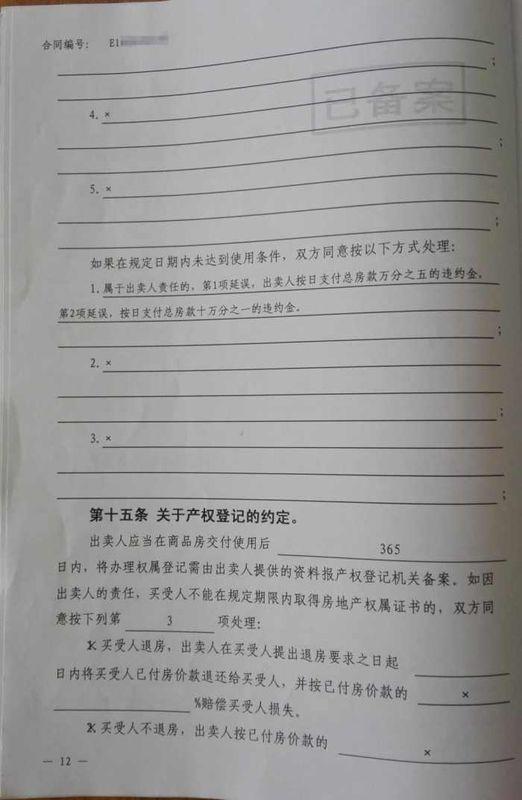 合同编号： E1
已备案
；
4. ×
；
5. ×
；
如果在规定日期内未达到使用条件，双方同意按以下方式处理：
1. 属于出卖人责任的，第1项延误，出卖人按日支付总房款万分之五的违约金。
第2项延误，按日支付总房款十万分之一的违约金。
2. ×
；
3. ×
；
第十五条 关于产权登记的约定。
出卖人应当在商品房交付使用后 365
日内，将办理权属登记需由出卖人提供的资料报产权登记机关备案。如因
出卖人的责任，买受人不能在规定期限内取得房地产权属证书的，双方同
意按下列第 3 项处理：
买受人退房，出卖人在买受人提出退房要求之日起
日内将买受人已付房价款退还给买受人，并按已付房价款的 ×
%赔偿买受人损失。
买受人不退房，出卖人按已付房价款的 ×
— 12 —